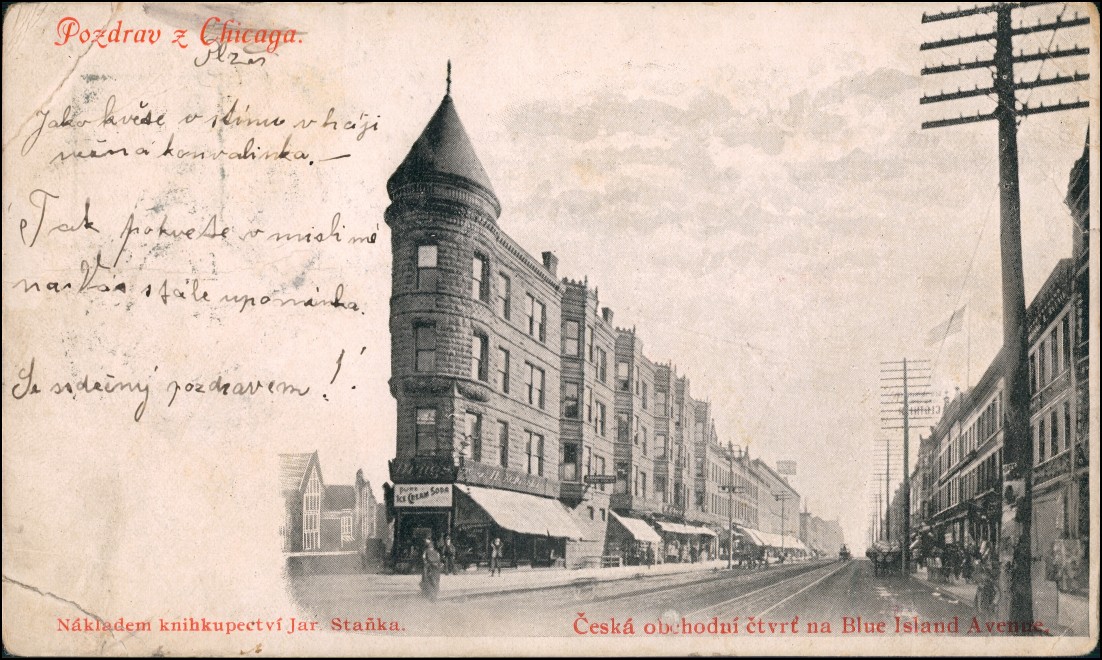 Pozdrav z Chicaga.
Jako květe v stínu v háji
něžná konvalinka. —
Tak pokvete v misli mé
na Vás stále upomínka.
Se srdečný pozdravem!
PURE
ICE CREAM SODA
Nákladem knihkupectví Jar. Staňka.
Česká obchodní čtvrť na Blue Island Avenue.